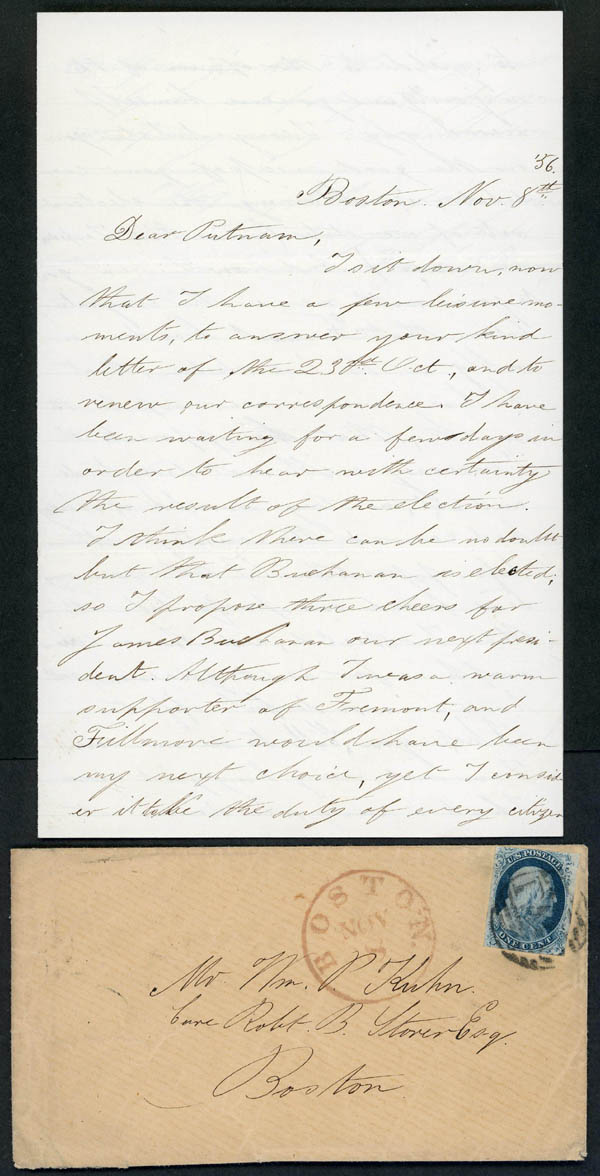 '56.
Boston. Nov. 8th
Dear Putnam,
I sit down, now
that I have a few leisure mo-
ments, to answer your kind
letter of the 23d. Oct., and to
renew our correspondence. I have
been waiting for a few days in
order to hear with certainty
the result of the election.
I think there can be no doubt
but that Buchanan is elected;
so I propose three cheers for
James Buchanan our next presi-
dent. Although I was a warm
supporter of Fremont, and
Fillmore would have been
my next choice, yet I consid-
er it to be the duty of every citizen
U.S. POSTAGE
ONE CENT
BOSTON.
NOV
Mr. Wm. P. Kuhn.
Care Robt. B. Storer Esq.
Boston